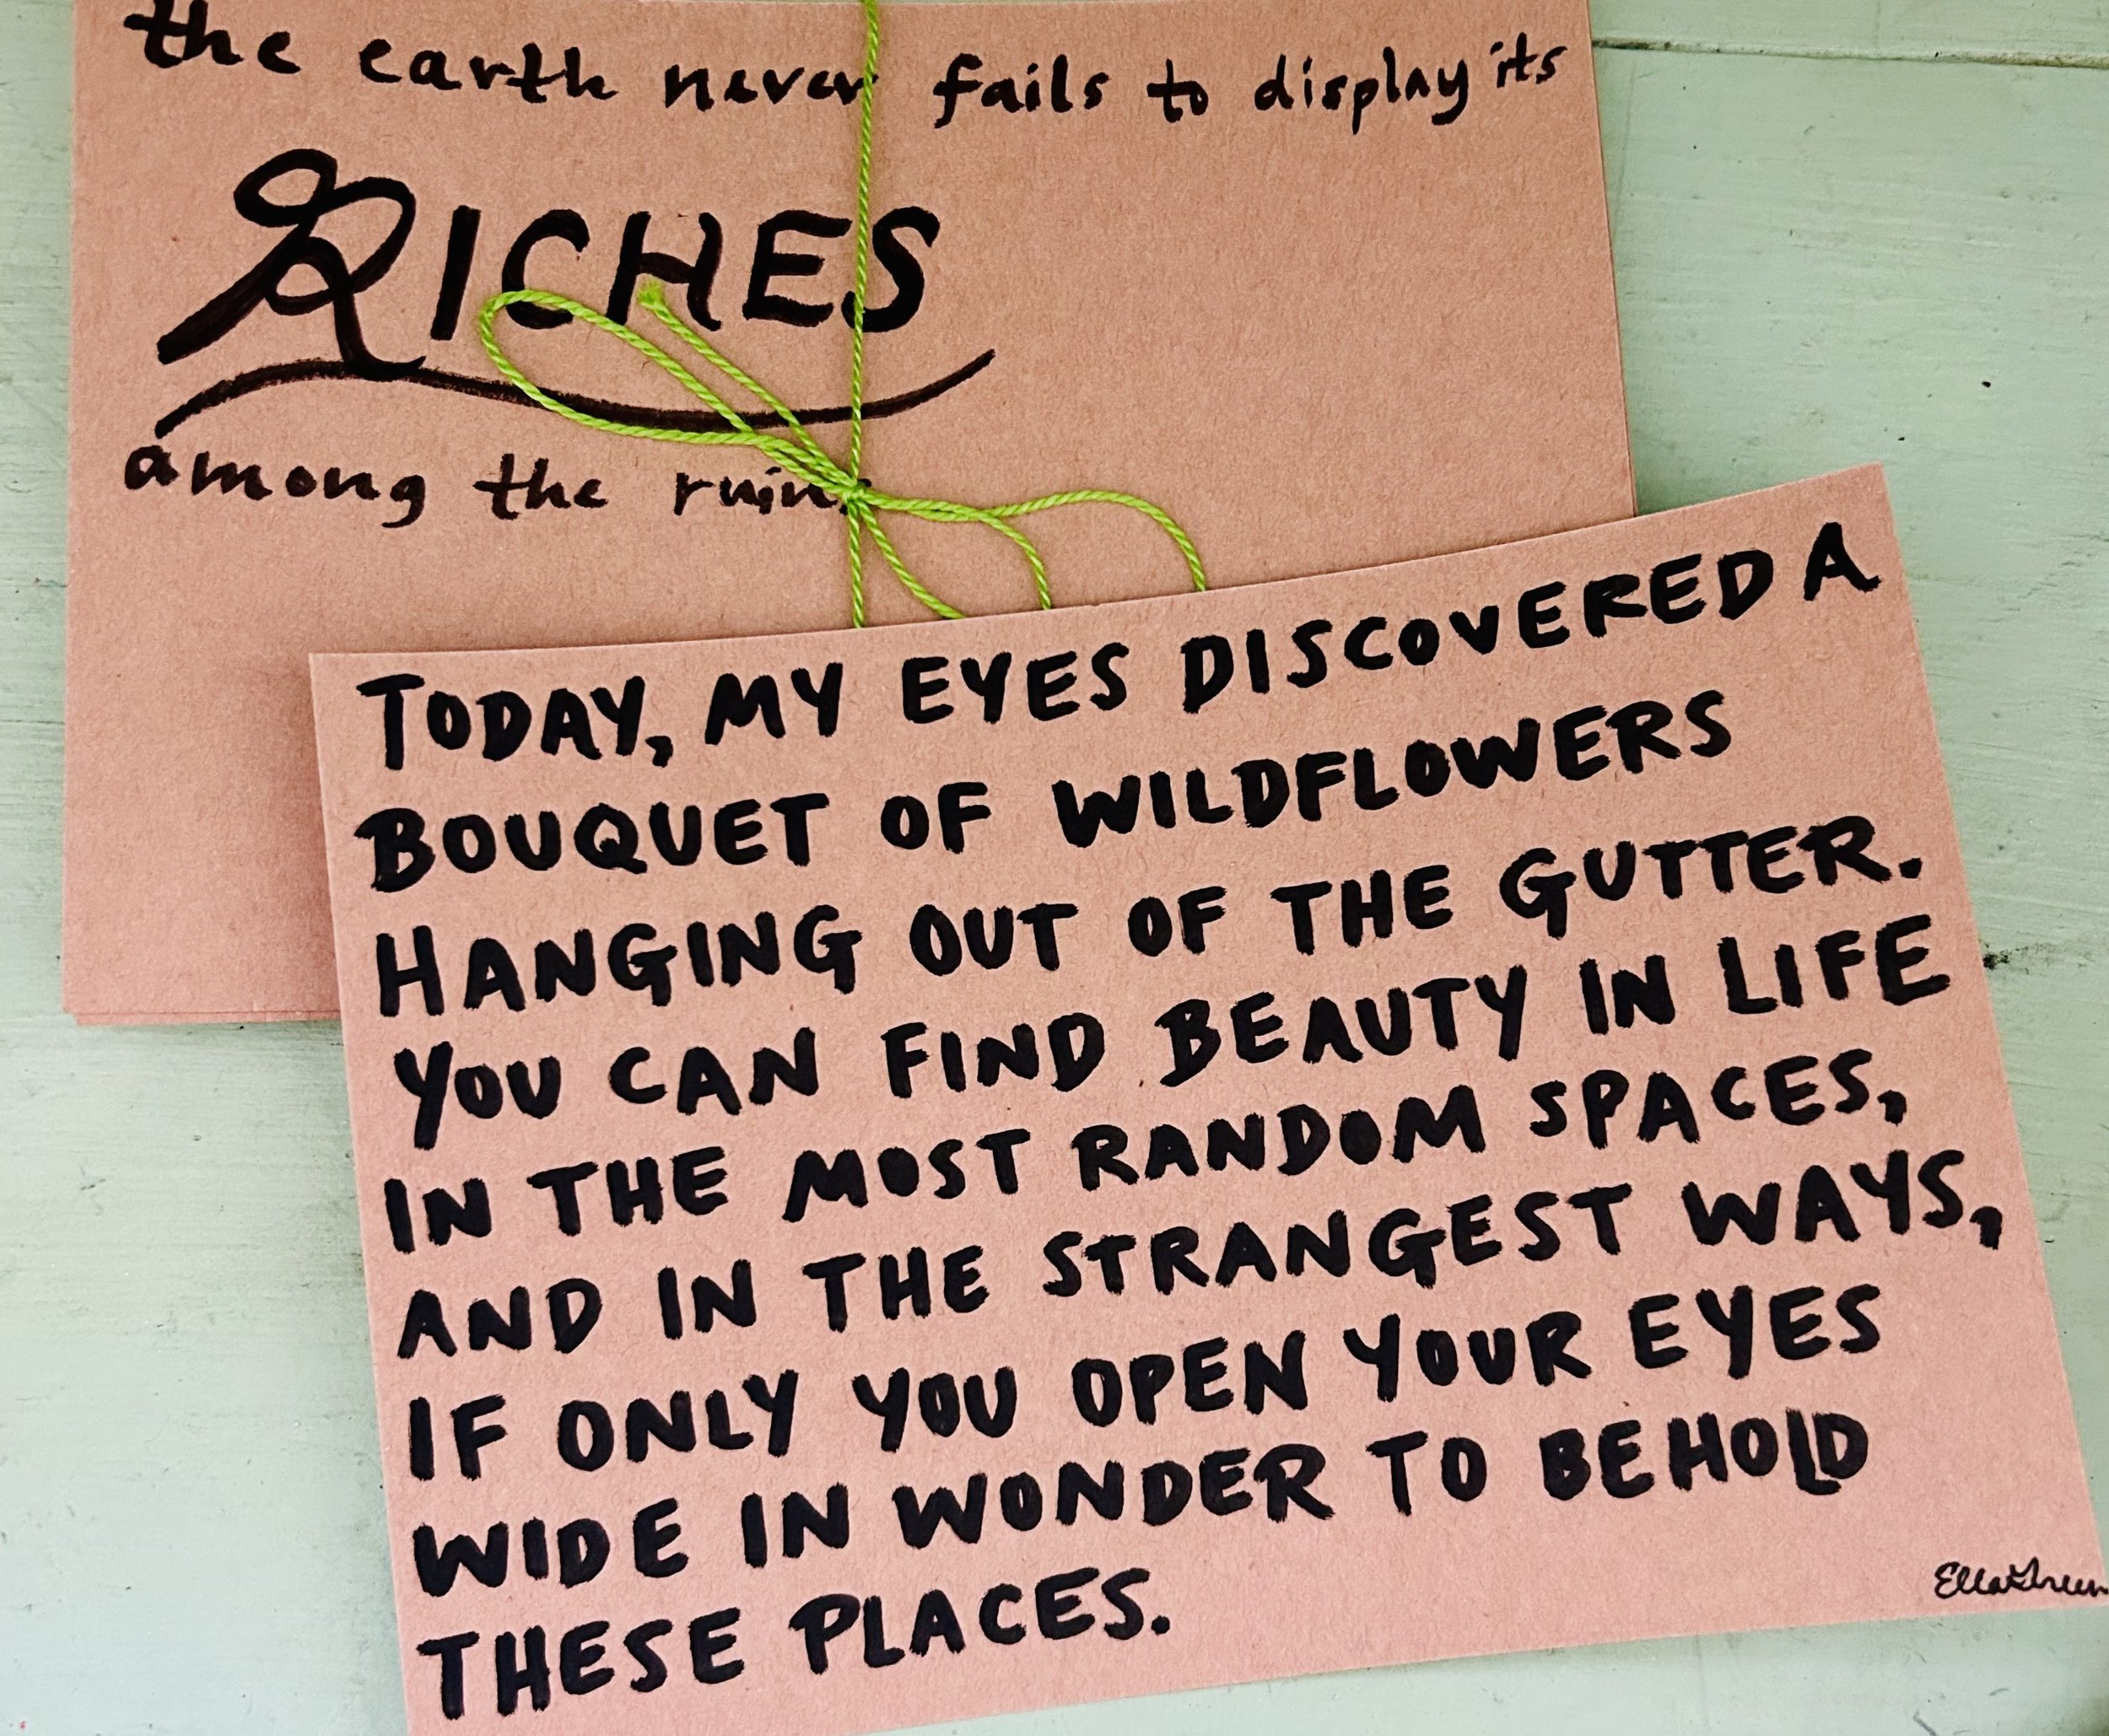 the earth never fails to display its
RICHES
among the ruins
TODAY, MY EYES DISCOVERED A
BOUQUET OF WILDFLOWERS
HANGING OUT OF THE GUTTER.
YOU CAN FIND BEAUTY IN LIFE
IN THE MOST RANDOM SPACES,
AND IN THE STRANGEST WAYS,
IF ONLY YOU OPEN YOUR EYES
WIDE IN WONDER TO BEHOLD
THESE PLACES.
Ella Green